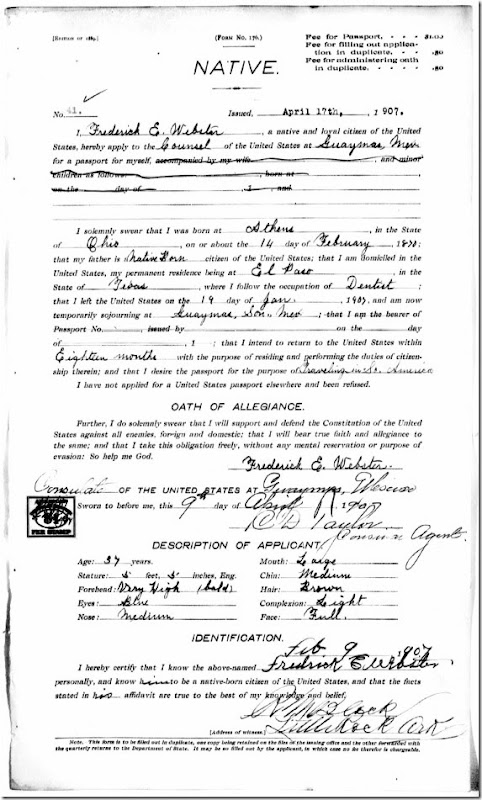 [Edition of 1889.]
(Form No. 176.)
Fee for Passport, - - - $1.00
Fee for filling out applica-
tion in duplicate. - - - .50
Fee for administering oath
in duplicate. - - - .50
NATIVE.
No. 41. Issued, April 17th, 1907.
I, Frederick E. Webster, a native and loyal citizen of the United
States, hereby apply to the Counsel of the United States at Guaymas, Mex
for a passport for myself, accompanied by my wife, and minor
children as follows: born at
on the day of , 1 , and
I solemnly swear that I was born at Athens, in the State
of Ohio, on or about the 14 day of February, 1870;
that my father is a native born citizen of the United States; that I am domiciled in the
United States, my permanent residence being at El Paso, in the
State of Texas, where I follow the occupation of Dentist;
that I left the United States on the 19 day of Jan., 1907, and am now
temporarily sojourning at Guaymas, Son. Mex; that I am the bearer of
Passport No. , issued by on the day
of , 1 ; that I intend to return to the United States within
Eighteen months with the purpose of residing and performing the duties of citizen-
ship therein; and that I desire the passport for the purpose of traveling in So. America
I have not applied for a United States passport elsewhere and been refused.
OATH OF ALLEGIANCE.
Further, I do solemnly swear that I will support and defend the Constitution of the United
States against all enemies, foreign and domestic; that I will bear true faith and allegiance to
the same; and that I take this obligation freely, without any mental reservation or purpose of
evasion: So help me God.
Frederick E. Webster.
Consulate OF THE UNITED STATES AT Guaymas, Mexico
Sworn to before me, this 9th day of April, 1907
Taylor
Consular Agent.
FEE STAMP
DESCRIPTION OF APPLICANT.
Age: 37 years. Mouth: Large
Stature: 5 feet, 5 inches, Eng. Chin: Medium
Forehead: Very High (bald) Hair: Brown
Eyes: Blue Complexion: Light
Nose: Medium Face: Full.
IDENTIFICATION.
Feb 9, 1907
I hereby certify that I know the above-named Fredrick E Webster
personally, and know him to be a native-born citizen of the United States, and that the facts
stated in his affidavit are true to the best of my knowledge and belief.
[Address of witness] Little Rock Ark
Note. This form is to be filled out in duplicate, one copy being retained on the files of the issuing office and the other forwarded with
the quarterly returns to the Department of State. It may be so filled out by the applicant, in which case no fee therefor is chargeable.